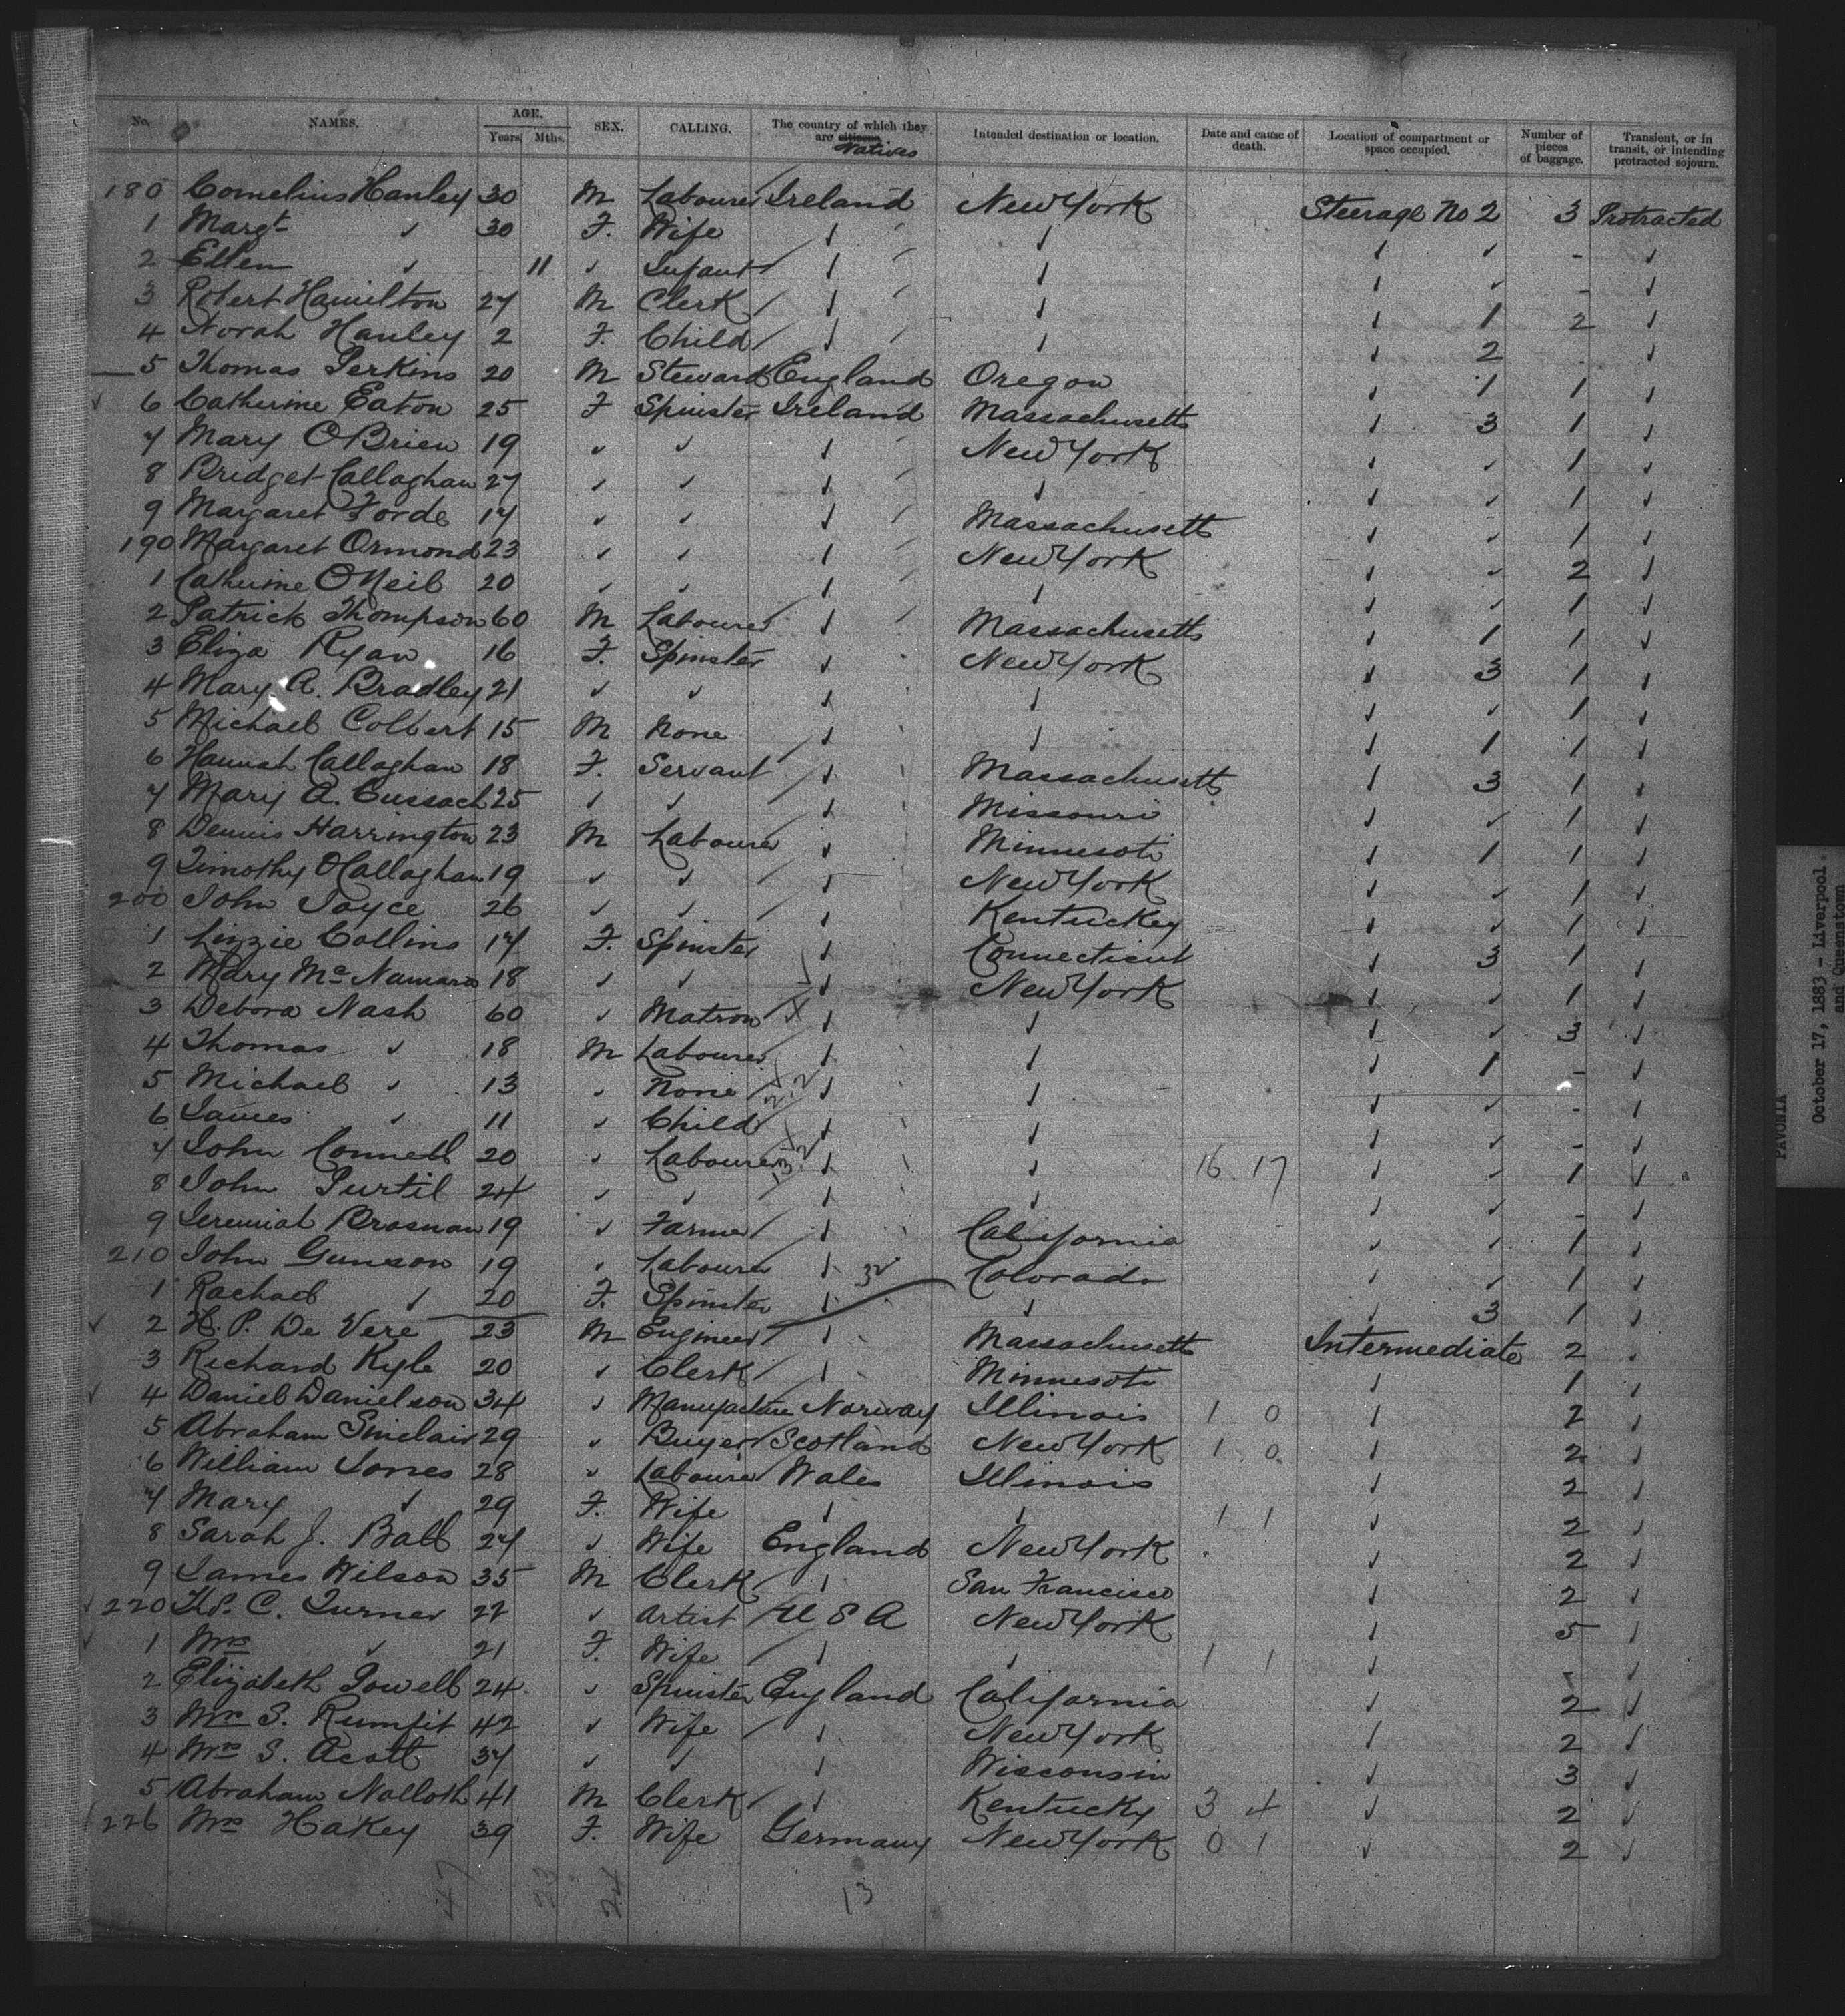 No. NAMES. AGE. Years Mths. SEX. CALLING. The country of which they are citizens Natives Intended destination or location. Date and cause of death. Location of compartment or space occupied. Number of pieces of baggage. Transient, or in transit, or intending protracted sojourn.
180 Cornelius Hanley 30 M Labourer Ireland New York Steerage No 2 3 Protracted
1 Margt ✓ 30 F. Wife ✓ ✓ ✓ ✓ - ✓
2 Ellen ✓ 11 ✓ Infant ✓ ✓ ✓ ✓ - ✓
3 Robert Hamilton 27 M Clerk ✓ ✓ ✓ 1 2 ✓
4 Norah Hanley 2 F. Child ✓ ✓ ✓ 2 ✓
5 Thomas Perkins 20 M Steward England Oregon ✓ 1 1 ✓
✓ 6 Catherine Eaton 25 F Spinster Ireland Massachusetts ✓ 3 1 ✓
7 Mary OBrien 19 ✓ ✓ ✓ New York ✓ ✓ 1 ✓
8 Bridget Callaghan 27 ✓ ✓ ✓ ✓ ✓ ✓ 1 ✓
9 Margaret Forde 17 ✓ ✓ ✓ Massachusetts ✓ ✓ 1 ✓
190 Margaret Ormond 23 ✓ ✓ ✓ New York ✓ ✓ 2 ✓
1 Catherine ONeil 20 ✓ ✓ ✓ ✓ ✓ ✓ 1 ✓
2 Patrick Thompson 60 M Labourer ✓ Massachusetts ✓ 1 1 ✓
3 Eliza Ryan 16 F. Spinster ✓ New York ✓ 3 1 ✓
4 Mary A. Bradley 21 ✓ ✓ ✓ ✓ ✓ ✓ 1 ✓
5 Michael Colbert 15 M None ✓ ✓ ✓ 1 1 ✓
6 Hannah Callaghan 18 F. Servant ✓ Massachusetts ✓ 3 1 ✓
7 Mary A. Cussach 25 ✓ ✓ ✓ Missouri ✓ ✓ 1 ✓
8 Dennis Harrington 23 M Labourer ✓ Minnesota ✓ 1 1 ✓
9 Timothy OCallaghan 19 ✓ ✓ ✓ New York ✓ ✓ 1 ✓
200 John Joyce 26 ✓ ✓ ✓ Kentuckey ✓ ✓ 1 ✓
1 Lizzie Collins 17 F. Spinster ✓ Connecticut ✓ 3 1 ✓
2 Mary McNamara 18 ✓ ✓ ✓ New York ✓ ✓ 1 ✓
3 Debora Nash 60 ✓ Matron X ✓ ✓ ✓ ✓ 3 ✓
4 Thomas ✓ 18 M Labourer ✓ ✓ ✓ 1 - ✓
5 Michael ✓ 13 ✓ None ✓ ✓ ✓ ✓ - ✓
6 James ✓ 11 ✓ Child ✓ ✓ ✓ ✓ - ✓
7 John Connell 20 ✓ Labourer ✓ ✓ 16 17 ✓ ✓ 1 ✓
8 John Purtil 24 ✓ ✓ ✓ ✓ ✓ ✓ - ✓
9 Jeremiah Brosnan 19 ✓ Farmer ✓ California ✓ ✓ 1 ✓
210 John Gunson 19 ✓ Labourer ✓ Colorado ✓ ✓ 1 ✓
1 Rachael ✓ 20 F. Spinster ✓ ✓ ✓ 3 1 ✓
✓ 2 H. P. De Vere 23 M Engineer ✓ Massachusetts Intermediate 2 ✓
3 Richard Kyle 20 ✓ Clerk ✓ Minnesota ✓ 1 ✓
✓ 4 Daniel Danielson 34 ✓ Manufacture Norway Illinois 1 0 ✓ 2 ✓
5 Abraham Sinclair 29 ✓ Buyer Scotland New York 1 0 ✓ 2 ✓
6 William Jones 28 ✓ Labourer Wales Illinois ✓ 2 ✓
7 Mary ✓ 29 F. Wife ✓ ✓ 1 1 ✓ 2 ✓
8 Sarah J. Ball 27 ✓ Wife England New York ✓ 2 ✓
9 James Wilson 35 M Clerk ✓ San Francisco ✓ 2 ✓
✓ 220 C. Turner 22 ✓ Artist U S A New York ✓ 5 ✓
✓ 1 Mrs ✓ 21 F. Wife ✓ ✓ 1 1 ✓ - ✓
2 Elizabeth Powell 24 ✓ Spinster England California ✓ 2 ✓
3 Mrs S. Rumfit 42 ✓ Wife ✓ New York ✓ 2 ✓
4 Mrs S. Acott 37 ✓ ✓ ✓ Wisconsin ✓ 3 ✓
5 Abraham Nolloth 41 M Clerk ✓ Kentucky 3 4 ✓ 2 ✓
226 Mrs Hakey 39 F. Wife Germany New York 0 1 ✓ 2 ✓
47 23 24 13
PAVONIA
October 17, 1883 - Liverpool
and Queenstown